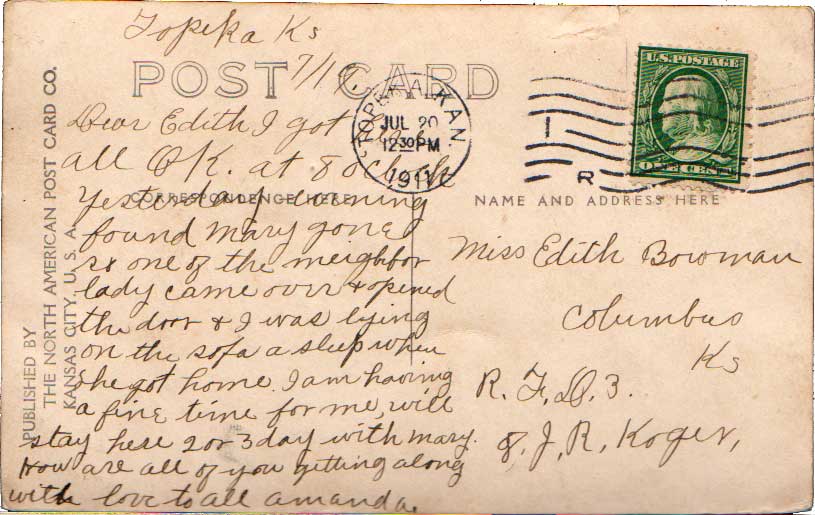 Topeka Ks
7/19.
POST CARD
Dear Edith I got
all OK. at 8 oclock
yesterday evening
found mary gone
& one of the neighbor
lady came over & opened
the door & I was lying
on the sofa a sleep when
she got home. I am having
a fine time for me, will
stay here 2 or 3 day with mary.
How are all of you getting along
with love to all amanda.
CORRESPONDENCE HERE
PUBLISHED BY
THE NORTH AMERICAN POST CARD CO.
KANSAS CITY, U. S. A.
TOPEKA, KAN.
JUL 20
1230PM
1911
1
R
U.S. POSTAGE
ONE CENT
NAME AND ADDRESS HERE
Miss Edith Bowman
Columbus
Ks
R. F. D. 3.
J. R. Koger,